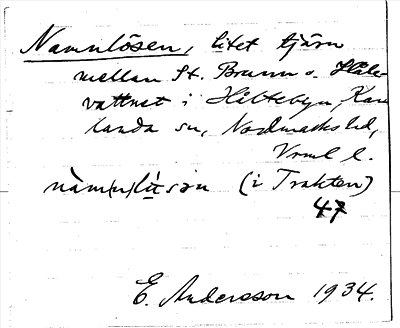 Namnlösen, litet tjärn
mellan St. Brunn o. Håle-
vattnet i Håltebyn, Kar
landa sn, Nordmarks hd,
Vrml l.
nàm(n)lìtsən (i Trakten)
47
E. Andersson 1934.